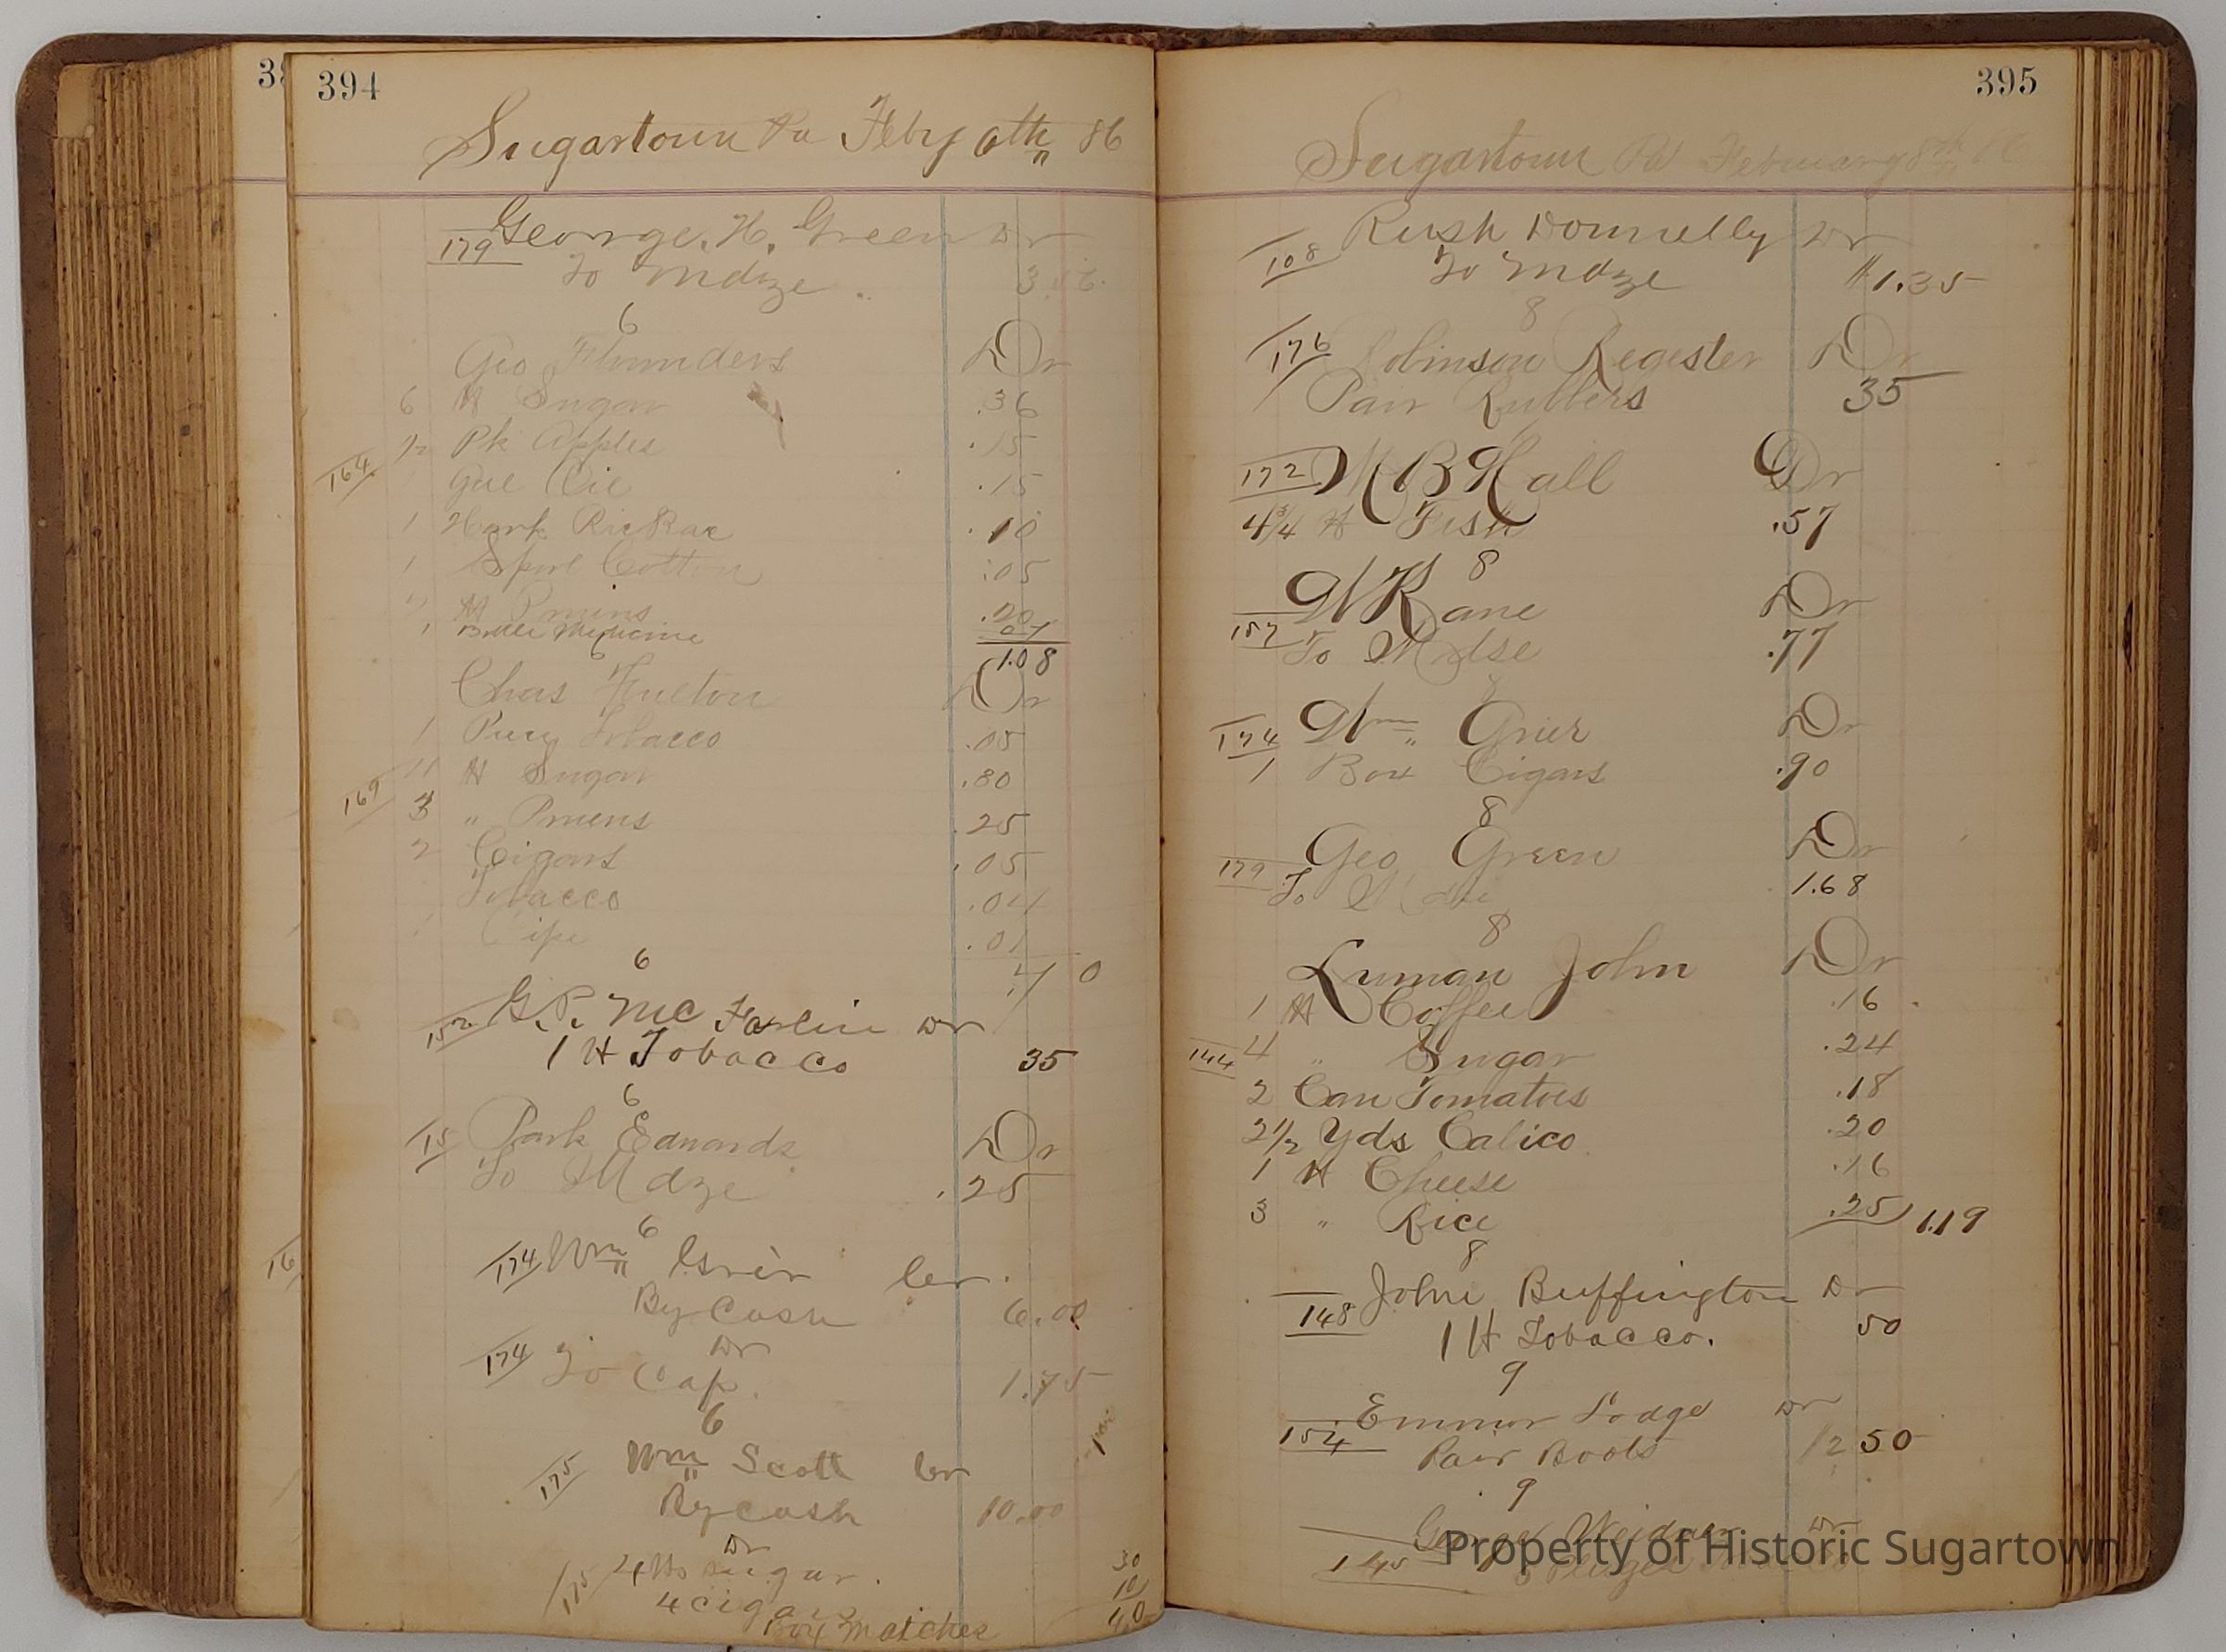 394
Sugartown Pa Feby 6th 86
179 George. H. Green Dr
To Mdze. 3.
6
Geo Flounders Dr
6 ℔ Sugar .36
1/2 Pk Apples .15
164 Gal Oil .15
1 Hank Ric Rac .10
1 Spool Cotton .05
2 ℔ Pruins .20
1 Bottle Medicine 07
6 1.08
Chas Fulton Dr
1 Purg Tobacco .05
11 ℔ Sugar .80
169 3 " Pruens .25
2 Cigars .05
Tobacco .04
1 Pipe .01
6
152 G. P. Mc Farlin Dr
1 ℔ Tobacco 35
6
15 Park Edwards Dr
To Mdze .25
6
174 Wm Grier Cr.
By Cash 6.00
Dr
174 To Cap. 1.75
6
175 Wm Scott Cr
By Cash 10.00
Dr
175 4 ℔s Sugar. 30
4 Cigars 10
Box Matches 40
16
395
Sugartown Pa February 8th 86
108 Rush Donnelly Dr
To Mdze $1.35
8
176 Robinson Regester Dr
1 Pair Rubbers 35
172 W B Hall Dr
4 3/4 ℔ Fish .57
8
W Kane Dr
157 To Mdse .77
8
174 Wm Grier Dr
1 Box Cigars .90
8
179 Geo Green Dr
To Mdse 1.68
8
Luman John Dr
1 ℔ Coffee .16
144 4 " Sugar .24
2 Can Tomatoes .18
2 1/2 Yds Calico .20
1 ℔ Cheese .16
3 " Rice .25 1.19
8
148 John Buffington Dr
1 ℔ Tobacco. 50
9
154 Emmor Lodge Dr
Pair Boots 2 50
9
145 George Dr
Property of Historic Sugartown